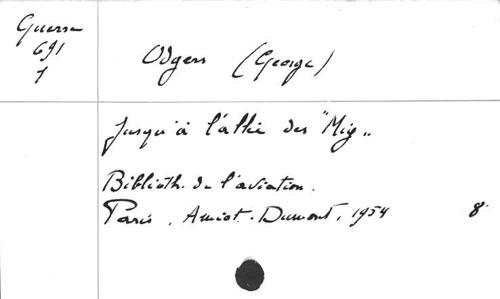 Guerre
691
1
Odgers (George)
Jusqu'à l'allée des "Mig"
Biblioth. de l'aviation.
Paris, Amiot-Dumont, 1954 8°